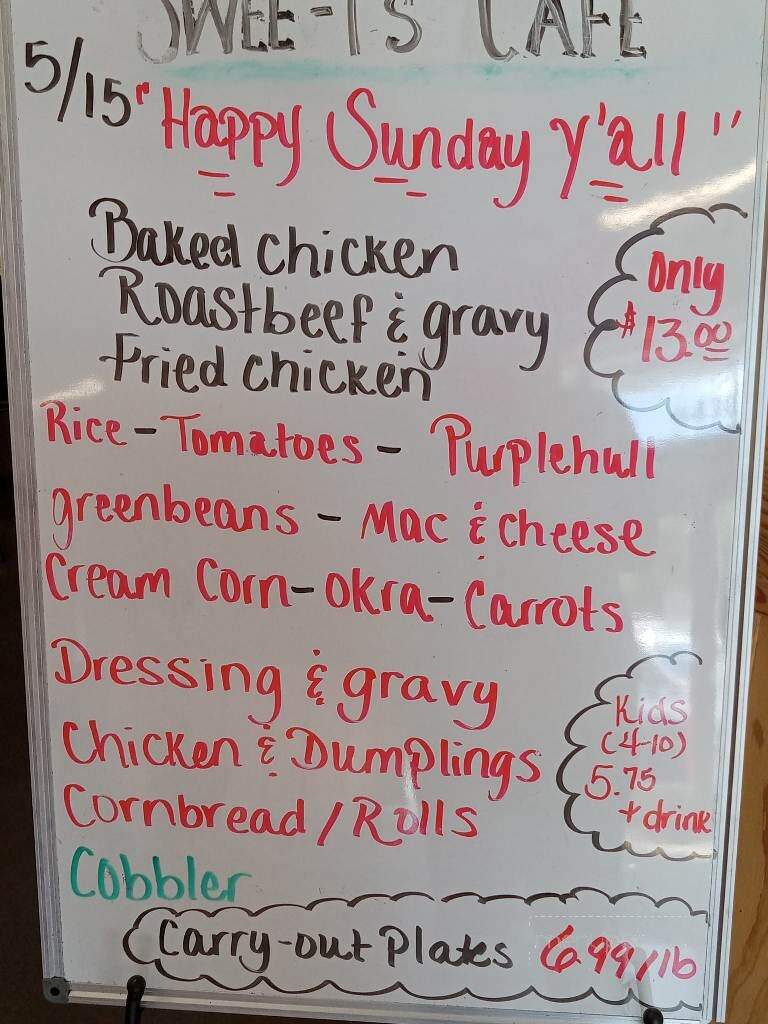 SWEE-T'S CAFE
5/15 "Happy Sunday Y'all"
Baked chicken
Roastbeef & gravy
Fried chicken
Only
$13.00
Rice - Tomatoes - Purplehull
greenbeans - Mac & cheese
Cream Corn - Okra - Carrots
Dressing & gravy
Chicken & Dumplings
Cornbread / Rolls
Kids
(4-10)
5.75
+ drink
Cobbler
Carry-out Plates 6.99/lb